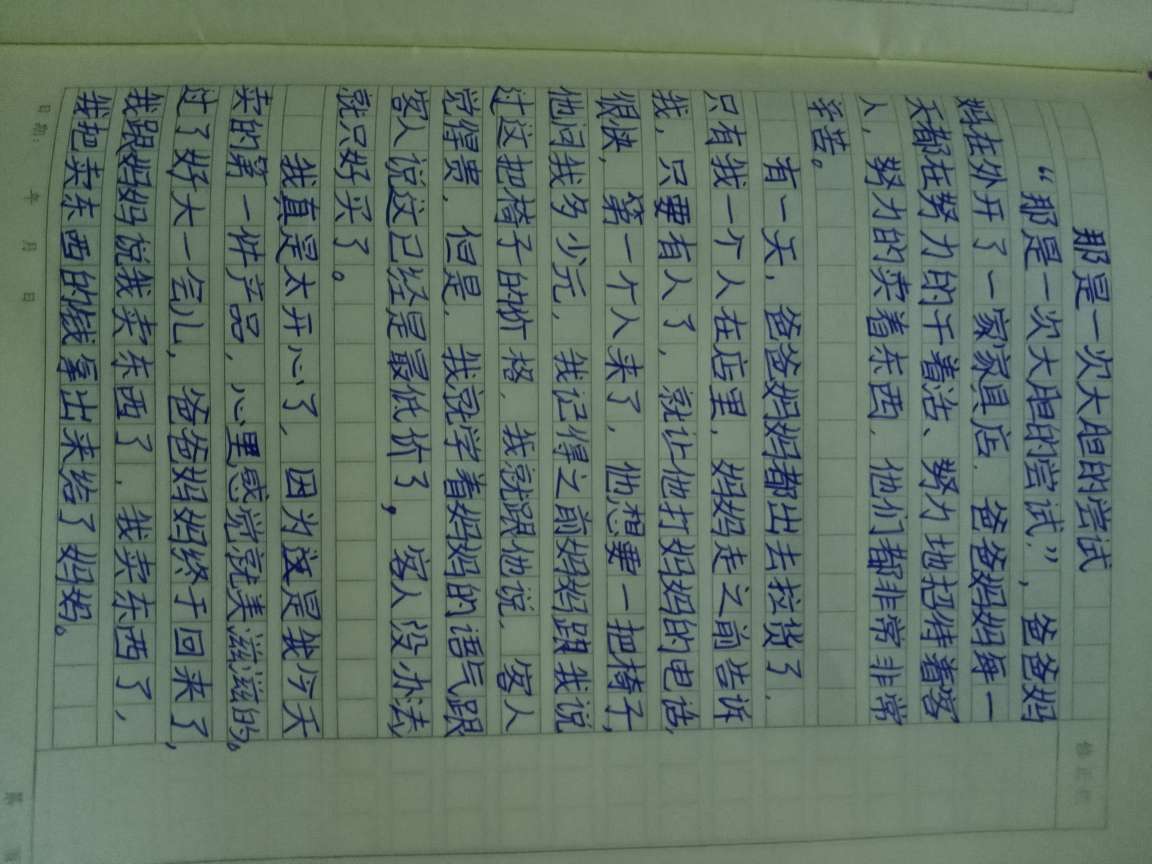 那是一次大胆的尝试
“那是一次大胆的尝试”，爸爸妈
妈在外开了一家家具店，爸爸妈妈每一
天都在努力的干着活、努力地招待着客
人，努力的卖着东西，他们都非常非常
辛苦。
有一天，爸爸妈妈都出去拉货了，
只有我一个人在店里，妈妈走之前告诉
我，只要有人了，就让他打妈妈的电话，
很快，第一个人来了，他想要一把椅子，
他问我多少元，我记得之前妈妈跟我说
过这把椅子的价格，我就跟他说，客人
觉得贵，但是，我就学着妈妈的语气跟
客人说这已经是最低价了，客人没办法
就只好买了。
我真是太开心了，因为这是我今天
卖的第一件产品，心里感觉就美滋滋的。
过了好大一会儿，爸爸妈妈终于回来了，
我跟妈妈说我卖东西了，我卖东西了，
我把卖东西的钱拿出来给了妈妈。
日期：
年
月
日